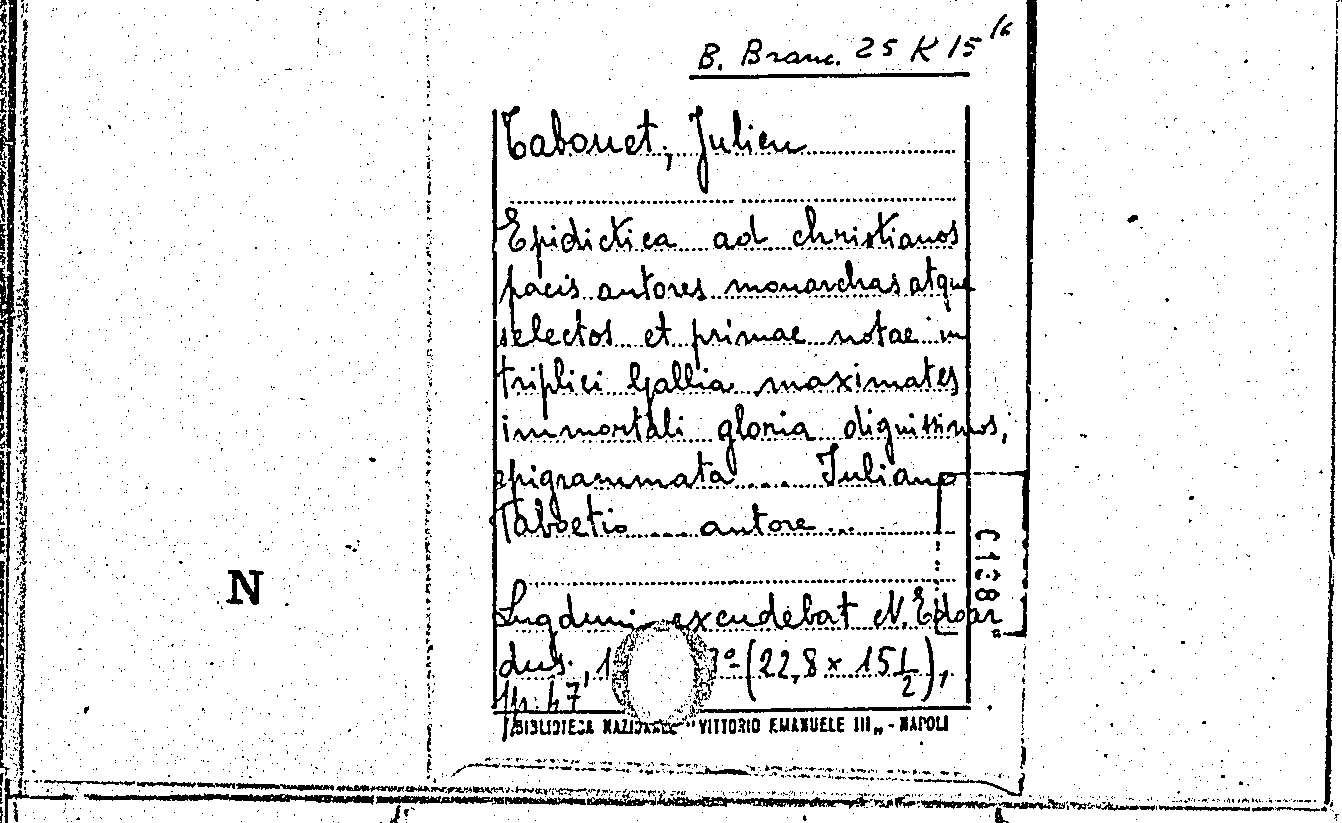 B. Branc. 25 K 15 16
Tabouet, Julien
Epidictica ad christianos
pacis autores monarchas atque
selectos et primae notae in
triplici Gallia maximates
immortali gloria dignissimos,
epigrammata.... Iuliano
Taboetio.... autore...
C 138
Lugduni excudebat N. Edoar
dus., 1 (22,8 x 15 1/2),
pp. 47
N
BIBLIOTECA NAZIONALE "VITTORIO EMANUELE III„ - NAPOLI